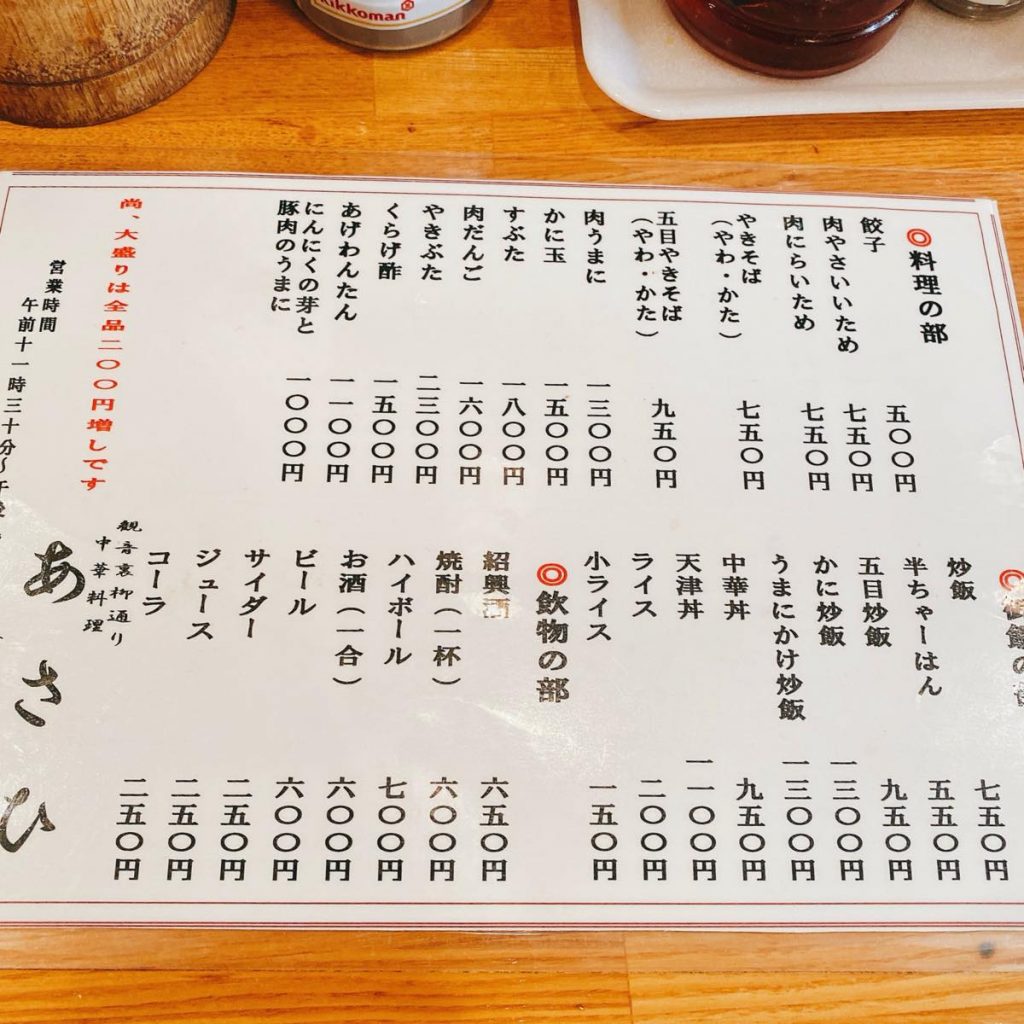 Kikkoman
◎料理の部
餃子 五〇〇円
肉やさいいため 七五〇円
肉にらいため 七五〇円
やきそば
(やわ・かた) 七五〇円
五目やきそば
(やわ・かた) 九五〇円
肉うまに 一三〇〇円
かに玉 一五〇〇円
すぶた 一八〇〇円
肉だんご 一六〇〇円
やきぶた 二三〇〇円
くらげ酢 一五〇〇円
あげわんたん 一一〇〇円
にんにくの芽と
豚肉のうまに 一〇〇〇円
尚、大盛りは全品二〇〇円増しです
炒飯 七五〇円
半ちゃーはん 五五〇円
五目炒飯 九五〇円
かに炒飯 一三〇〇円
うまにかけ炒飯 一三〇〇円
中華丼 九五〇円
天津丼 一一〇〇円
ライス 二〇〇円
小ライス 一五〇円
◎飲物の部
紹興酒 六五〇円
焼酎(一杯) 六〇〇円
ハイボール 七〇〇円
お酒(一合) 六〇〇円
ビール 六〇〇円
サイダー 二五〇円
ジュース 二五〇円
コーラ 二五〇円
営業時間
午前十一時三十分～午後
観音裏柳通り
中華料理
あさひ